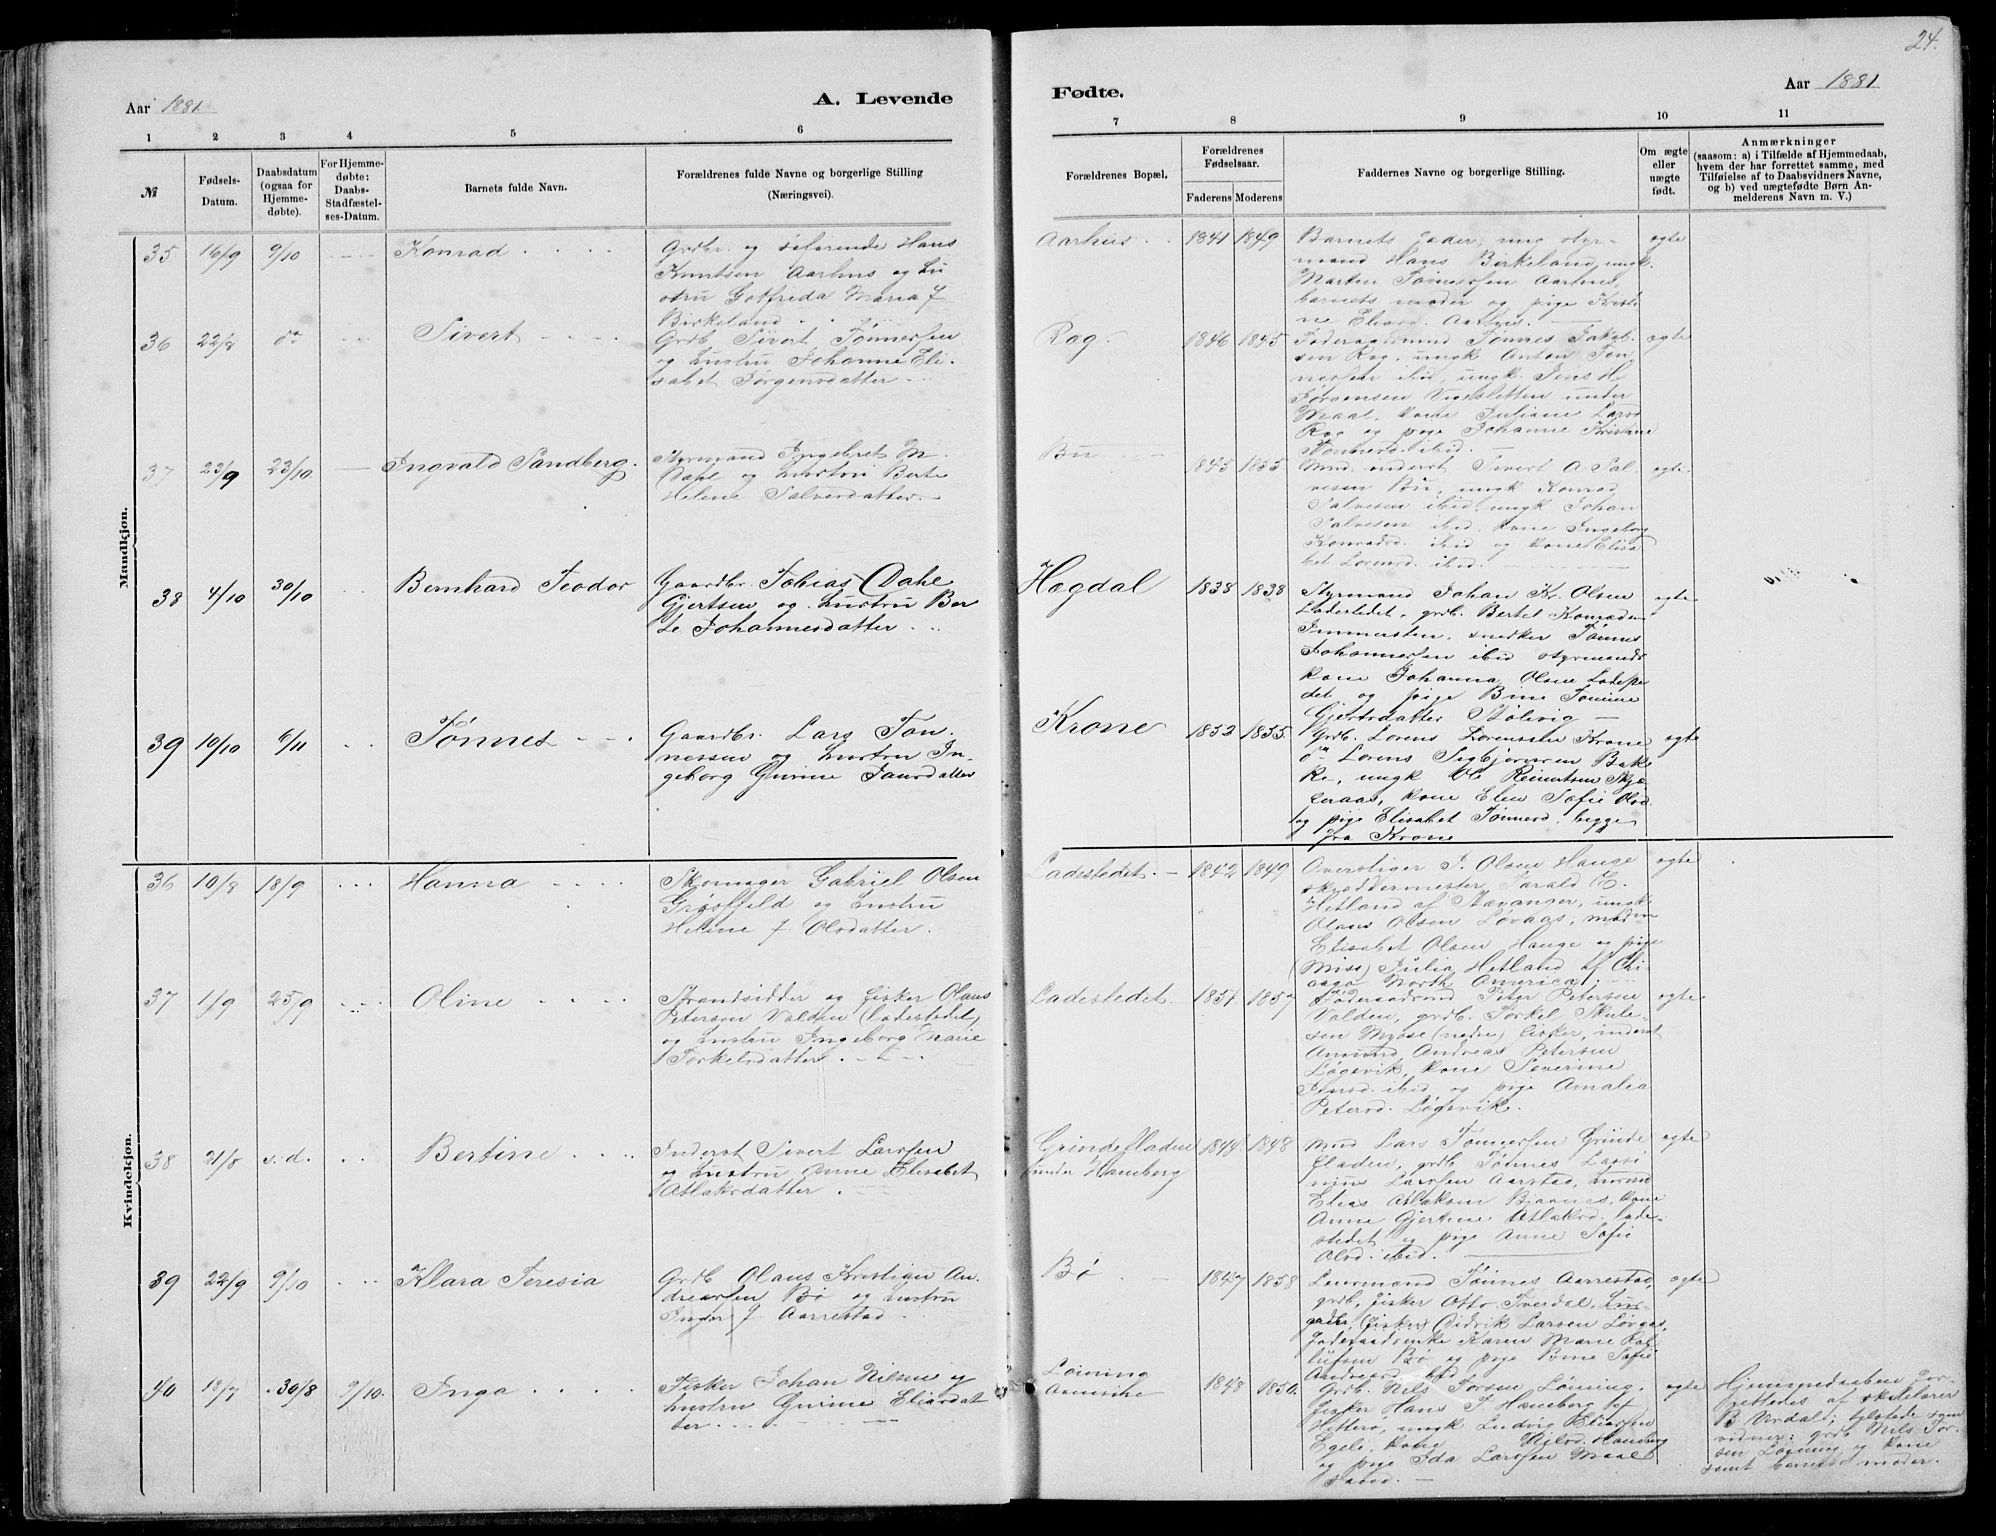 24.
Aar 1881
A. Levende
Fødte.
Aar 1881
1 2 3 4 5 6
7 8 9 10 11
№
Fødsels-
Datum.
Daabsdatum
(ogsaa for
Hjemme-
døbte).
For Hjemme-
døbte:
Daabs-
Stadfæstel-
ses-Datum.
Barnets fulde Navn.
Forældrenes fulde Navne og borgerlige Stilling
(Næringsvei).
Forældrenes Bopæl.
Forældrenes
Fødselsaar.
Faderens Moderens
Faddernes Navne og borgerlige Stilling.
Om ægte
eller
uægte
født.
Anmærkninger
(saasom: a) i Tilfælde af Hjemmedaab,
hvem der har forrettet samme, med
Tilføielse af to Daabsvidners Navne,
og b) ved uægtefødte Børn An-
melderens Navn m. V.)
Mandkjøn.
35 16/9 9/10 Konrad
Grdbr. og søfarende Hans
Knutsen Aarhus og hu
stru Gotfreda Maria J
Birkeland
Aarhus 1841 1849
Barnets fader, ung styr-
mand Hans Birkeland, ungk.
Marten Tønnessen Aarhus,
barnets moder og pige
ægte
36 22/8 do Sivert
Grdb Sivert Tønnessen
og hustru Johanne Eli-
sabet Jørgensdatter
Rag. 1846 1845
Føderaadsmand Tønnes Jakob-
sen Rag, ungk Anton Tøn-
nessen ibid, ungk. Jens H
Jørgensen under
Maal, kone Juliane Lars
Rag og pige Johanne Kristine
Tønnesd. ibid.
ægte
37 23/9 23/10 Ingvald Sandberg.
Styrmand Ingebret M.
Dahl og hustru Berte
Helene Salvesdatter
Bu 1845 1855
Sivert A Sal-
vesen Bu, ungk Konrad
Salvesen ibid, ungk Johan
Salvesen ibid, kone Ingeborg
Konradsd. ibid og kone Elisa
bet Lorensd. ibid.
ægte
38 4/10 30/10 Bernhard Teodor
Gaardbr. Tobias Dahl
Gjertsen og hustru Ber
te Johannesdatter
Hægdal 1838 1838
Styrmand Johan Kr. Olsen
Ladestedet, grdb. Bertel Konradsen
Immersten, snedker Tønnes
Johannessen ibid styrmands
kone Johanna Olsen Ladeste
det og pige Bine Tomine
Gjertsdatter Stølevig
ægte
39 10/10 6/11 Tønnes
Gaardbr. Lars Tøn
nessen og hustru In-
geborg Gurine
Krone 1852 1855
Grdb. Lorens Lorenssen Krone
do Lorens Sigbjørnsen Bak
ke, ungk Ole Reinertsen Skje
geraas, kone Elen Sofie Olsd.
og pige Elisabet Tønnesd. begge
fra Krone
ægte
Kvindekjøn.
36 10/8 18/9 Hanna
Skomager Gabriel Olsen
Grøsfjeld og hustru
Helene J. Olsdatter.
Ladestedet 1842 1849
J. Olsen Hauge
skræddermester Tarald E.
Hetland af Stavanger, ungk.
Olaus Olsen Løvaas, madm
Elisabet Olsen Hauge og pige
(Miss) Julia Hetland af Chi
cago North America;
ægte
37 1/9 25/9 Oline
Strandsidder og fisker Olaus
Petersen Valden (Ladestedet)
og hustru Ingeborg Marie
Torkelsdatter
Ladestedet 1851 1857
Føderaadsmd Peter Petersen
Valden, grdb. Torkel Skule-
sen Mydse (nedre) fisker, inderst
Amund Andreas Petersen
Løgevik, kone Severine
Jensd. ibid og pige Amalia
Petersd. Løgevik.
ægte
38 21/8 s. d. Bertine
Inderst Sivert Larssen
og hustru Anne Elisabet
Atlaksdatter
Grindefladen
under Hameborg
1844 1848
Lars Tønnessen Grinde
fladen, grdb Tønnes Lassi
nius Larssen Aarstad,
Elias Atlaksen Bjaanes, kone
Anne Gjertine Atlaksd. lade-
stedet og pige Anne Sofie
Olsd. ibid.
ægte
39 22/9 9/10 Klara Teresia
Grdb Olaus Kristian An-
dreassen Bø og hustru
Inger J. Aarrestad.
Bø 1847 1858
Tønnes Aarrestad,
grdb, fisker Otto Tverdal,
(fisker) Didrik Larsen Løvaas,
føderaadsenke Karen Marie
Bø og pige Bine Sofie
Andreasd. ibid
ægte
40 18/7 30/8 9/10. Inga
Fisker Johan Nilsen og
hustru Gurine Eliasdat
ter
Løining
1848 1850
Grdb. Nils Torsen Løining,
fisker Hans T. Hameborg af
Hitterø, ungk Ludvig Eliassen
Egeli, kone Nilsd. Hameborg
og pige Ida Larssen Maal
sand.
ægte
Hjemmedaaben for-
rettedes af skolelærer
B. Urdal; tilstede som
vidner: grdb Nils Tor-
sen Løining og kone
samt barnets moder.